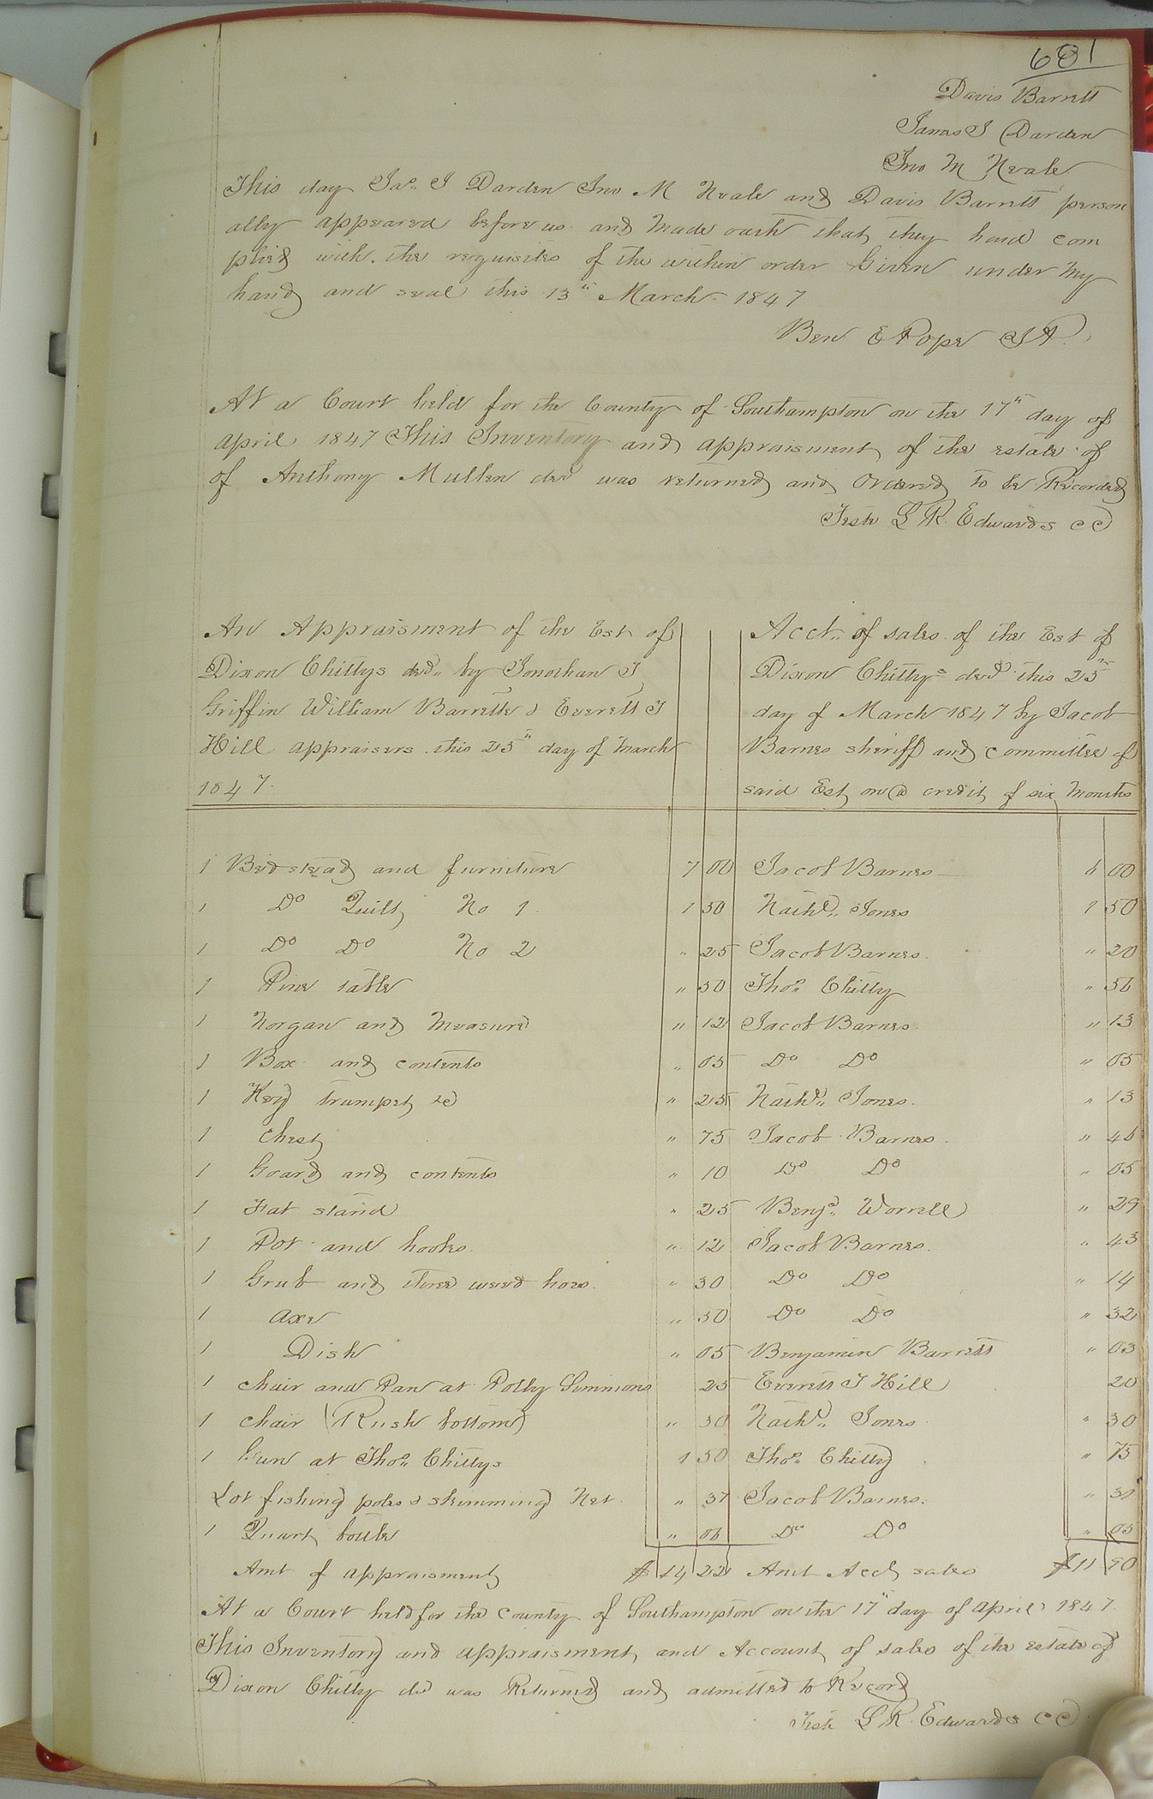 681
Davis Barrett
James J Darden
Jno M Neale
This day Jas. J Darden Jno M Neale and Davis Barrett person
ally appeared before us and made oath that they had com
plied with the requisites of the within order Given under my
hand and seal this 13th March 1847
Ben E Pope JP.
At a Court held for the County of Southampton on the 17th day of
April 1847 This Inventory and appraisment of the estate of
of Anthony Mullen decd was returned and Ordered to be Recorded
Teste L R Edwards CC
An Appraisment of the Est of
Dixon Chittys decd. by Jonothan J
Griffin William Barrette & Everett J
Hill appraisers this 25th day of March
1847.
Acct. of sales of the Est of
Dixon Chittys decd this 25th
day of March 1847 by Jacob
Barnes sheriff and committee of
said Est on a credit of six Months
1 Bedstead and furniture 7 00 Jacob Barnes 6 00
1 Do Quilt No 1 1 50 Nathl. Jones 1 50
1 Do Do No 2 " 25 Jacob Barnes " 20
1 Pine table " 50 Thos. Chitty " 56
1 Norgan and Measure " 12 Jacob Barnes " 13
1 Box and contents " 05 Do Do " 05
1 Keg trumpet &c " 25 Nathl. Jones " 13
1 Chest " 75 Jacob Barnes " 46
1 Goard and contents " 10 Do Do " 05
1 Fat stand " 25 Benja. Worrell " 29
1 Pot and hooks " 12 Jacob Barnes " 43
1 Grub and three weed hoes " 30 Do Do " 14
1 axe " 50 Do Do " 32
1 Dish " 05 Benjamin Barrett " 03
1 chair and Pan at Polly Simmons 25 Everett J Hill 20
1 chair (Rush bottom) " 30 Nathl. Jones " 30
1 Gun at Thos. Chittys 1 50 Thos. Chitty " 75
Lot fishing poles & skimming Net " 37 Jacob Barnes " 31
1 Quart bottle " 06 Do Do " 05
Amt of appraisment $ 14 22 Amt Acct sales $ 11 90
At a Court held for the county of Southampton on the 17th day of April 1847
This Inventory and appraisment and Account of sales of the estate of
Dixon Chitty decd was Returned and admitted to Record
Teste L R Edwards CC